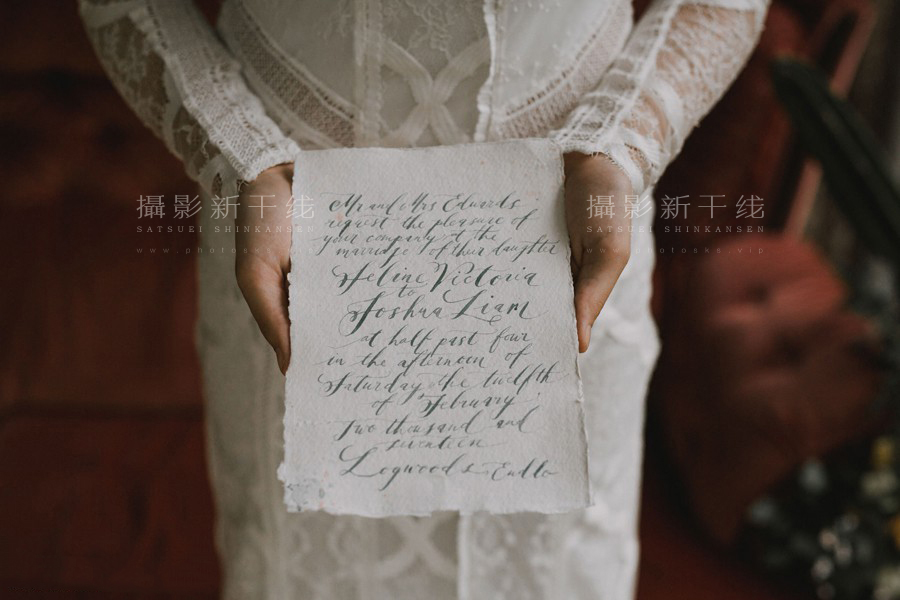 Mr and Mrs Edwards
request the pleasure of
your company at the
marriage of their daughter
Heline Victoria
to
Joshua Liam
at half past four
in the afternoon of
Saturday the twelfth
of February
Two thousand and
seventeen
Logwoods
攝影新干线
SATSUEI SHINKANSEN
www.photosk.vip
攝影新干线
SATSUEI SHINKANSEN
www.photosk.vip